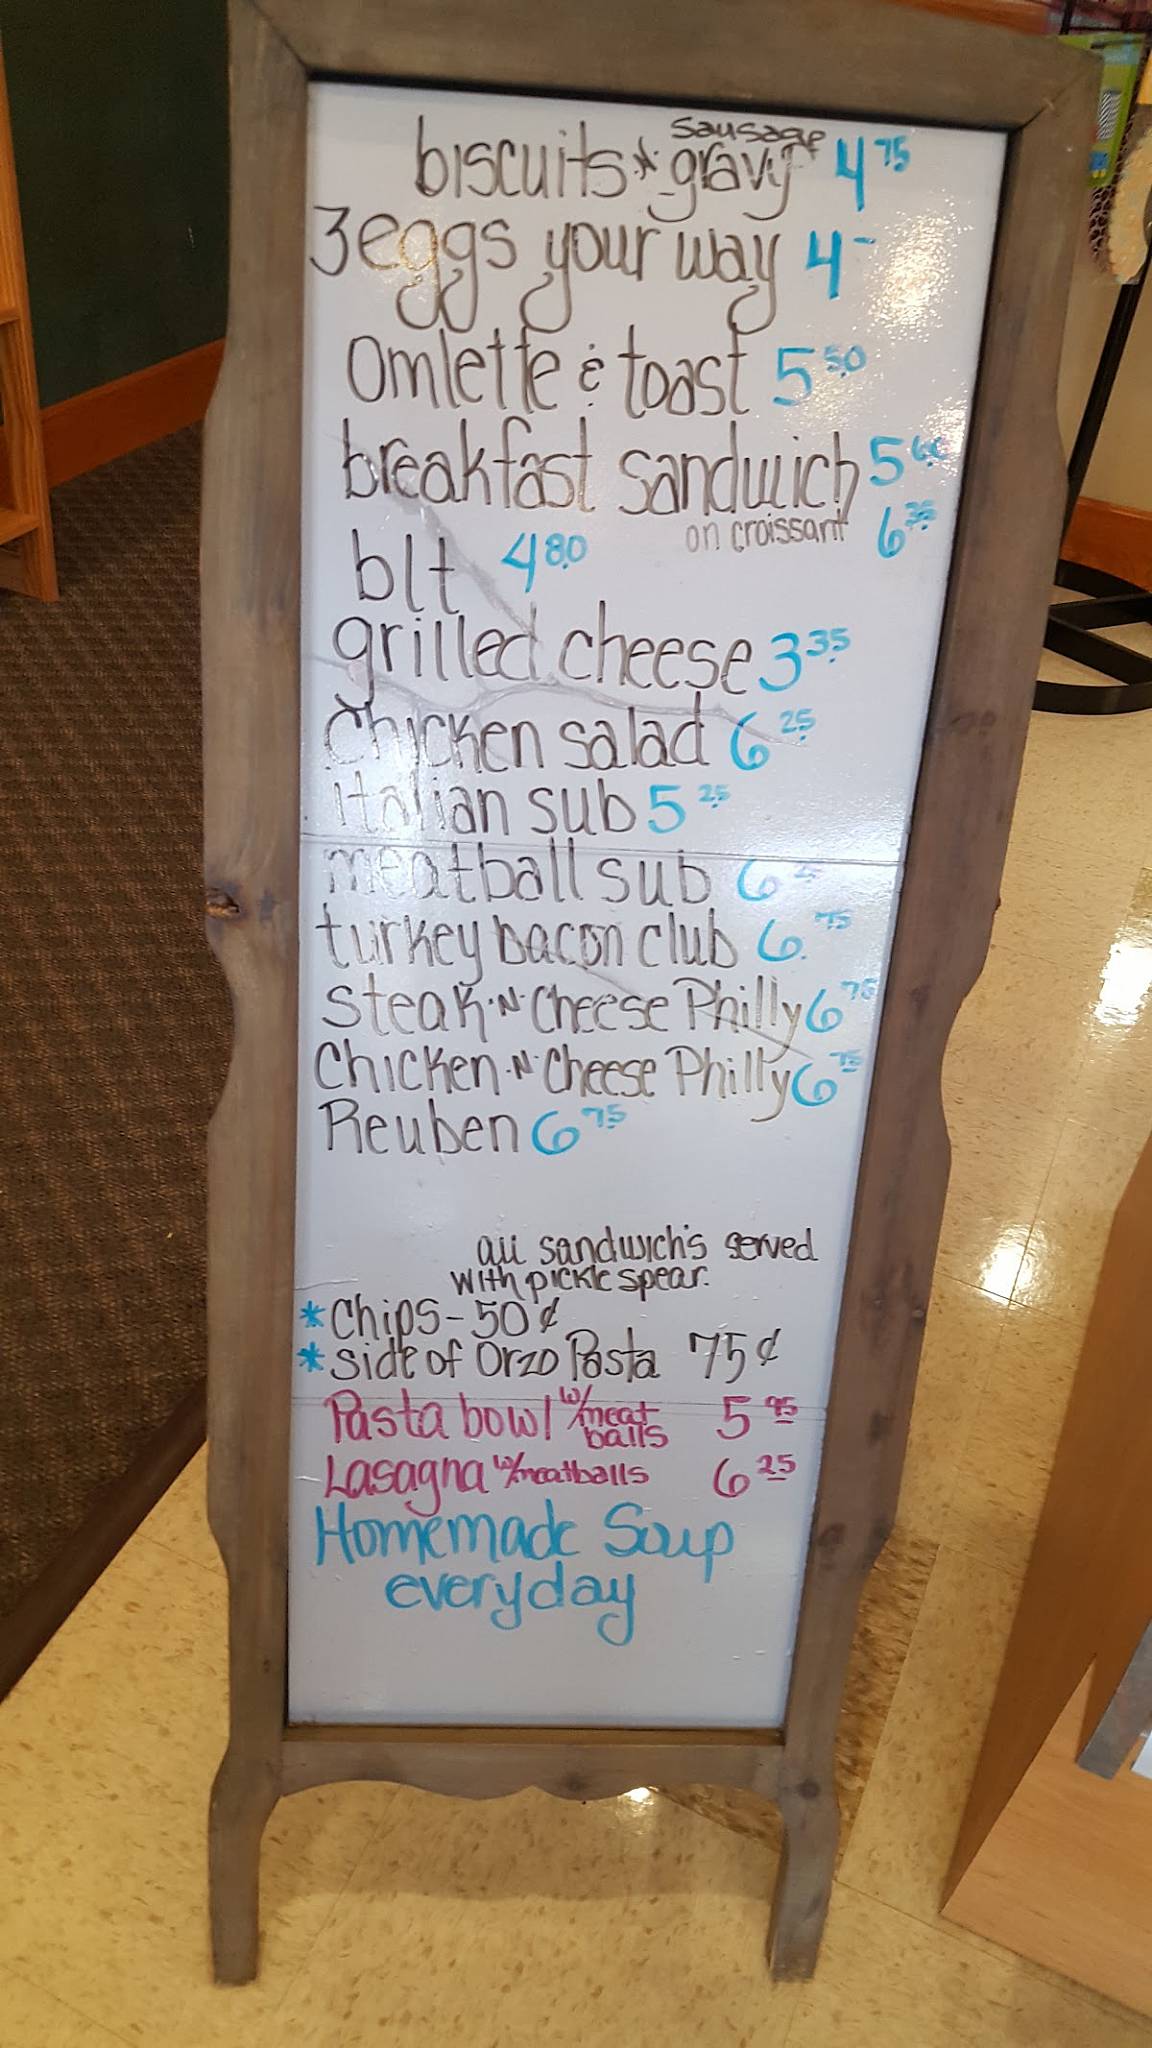 biscuits n sausage gravy 4 75
3 eggs your way 4 -
Omlette & toast 5 50
breakfast sandwich 5
on croissant 6 35
blt 4 80
grilled cheese 3 35
Chicken salad 6 25
italian sub 5 25
meatball sub 6
turkey bacon club 6. 75
Steak·N·Cheese Philly 6 75
Chicken·N·Cheese Philly 6 75
Reuben 6 75
all sandwich's served
with pickle spear.
*Chips - 50¢
*side of Orzo Pasta 75¢
Pasta bowl w/meat balls 5 95
Lasagna w/meatballs 6 25
Homemade Soup
everyday